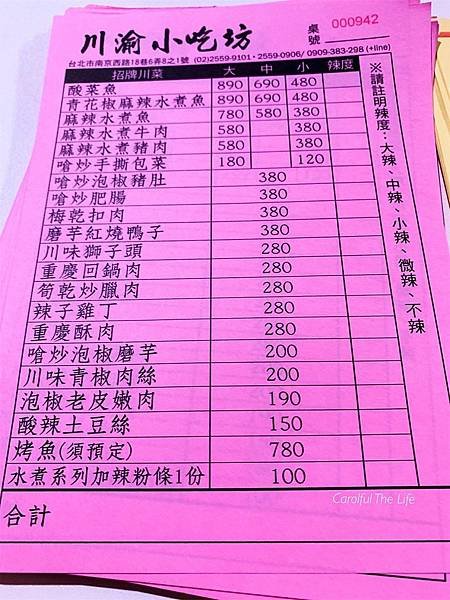 川渝小吃坊
桌號 000942
台北市南京西路18巷6弄8之1號 (02)2559-9101・2559-0906/ 0909-383-298 (+line)
招牌川菜 大 中 小 辣度
酸菜魚 890 690 480
青花椒麻辣水煮魚 890 690 480
麻辣水煮魚 780 580 380
麻辣水煮牛肉 580 380
麻辣水煮豬肉 580 380
嗆炒手撕包菜 180 120
嗆炒泡椒豬肚 380
嗆炒肥腸 380
梅乾扣肉 380
磨芋紅燒鴨子 380
川味獅子頭 280
重慶回鍋肉 280
筍乾炒臘肉 280
辣子雞丁 280
重慶酥肉 280
嗆炒泡椒磨芋 200
川味青椒肉絲 200
泡椒老皮嫩肉 190
酸辣土豆絲 150
烤魚(須預定) 780
水煮系列加辣粉條1份 100
合計
※請註明辣度：大辣、中辣、小辣、微辣、不辣
Carolful The Life